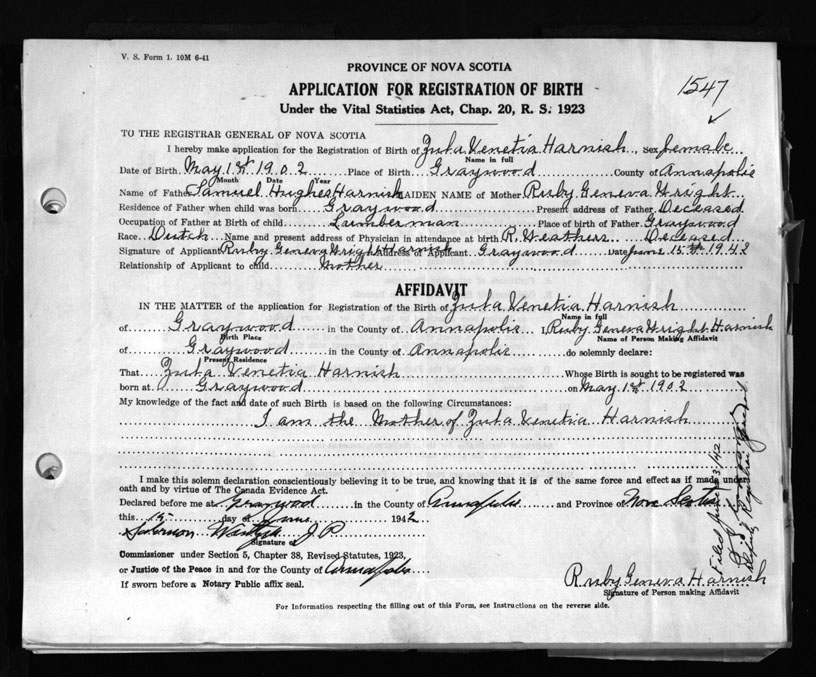 V. S. Form 1. 10M 6-41
PROVINCE OF NOVA SCOTIA
APPLICATION FOR REGISTRATION OF BIRTH
1547
Under the Vital Statistics Act, Chap. 20, R. S. 1923
TO THE REGISTRAR GENERAL OF NOVA SCOTIA
I hereby make application for the Registration of Birth of Zuta Venetia Harnish, Sex female
Name in full
Date of Birth May 1st 1902 Place of Birth Graywood County of Annapolis
Month Date Year
Name of Father Samuel Hughes Harnish MAIDEN NAME of Mother Ruby Geneva Wright
Residence of Father when child was born Graywood Present address of Father Deceased
Occupation of Father at Birth of child Lumberman Place of birth of Father Graywood
Race Deutch Name and present address of Physician in attendance at birth R. Weathers Deceased
Signature of Applicant Ruby Geneva Wright Harnish Address of Applicant Graywood Date June 15th 1942
Relationship of Applicant to child Mother
AFFIDAVIT
IN THE MATTER of the application for Registration of the Birth of Zuta Venetia Harnish
Name in full
of Graywood in the County of Annapolis I, Ruby Geneva Wright Harnish
Birth Place Name of Person Making Affidavit
of Graywood in the County of Annapolis do solemnly declare:
Present Residence
That Zuta Venetia Harnish Whose Birth is sought to be registered was
born at Graywood on May 1st 1902
My knowledge of the fact and date of such Birth is based on the following Circumstances:
I am the Mother of Zuta Venetia Harnish
I make this solemn declaration conscientiously believing it to be true, and knowing that it is of the same force and effect as if made under
oath and by virtue of The Canada Evidence Act.
Declared before me at Graywood in the County of Annapolis and Province of Nova Scotia
this 15 day of June 1942
Solomon J. P.
Signature of
Commissioner under Section 5, Chapter 38, Revised Statutes, 1923,
or Justice of the Peace in and for the County of Annapolis
If sworn before a Notary Public affix seal.
Ruby Geneva Harnish
Signature of Person making Affidavit
For Information respecting the filling out of this Form, see Instructions on the reverse side.
Filed
Deputy Registrar General